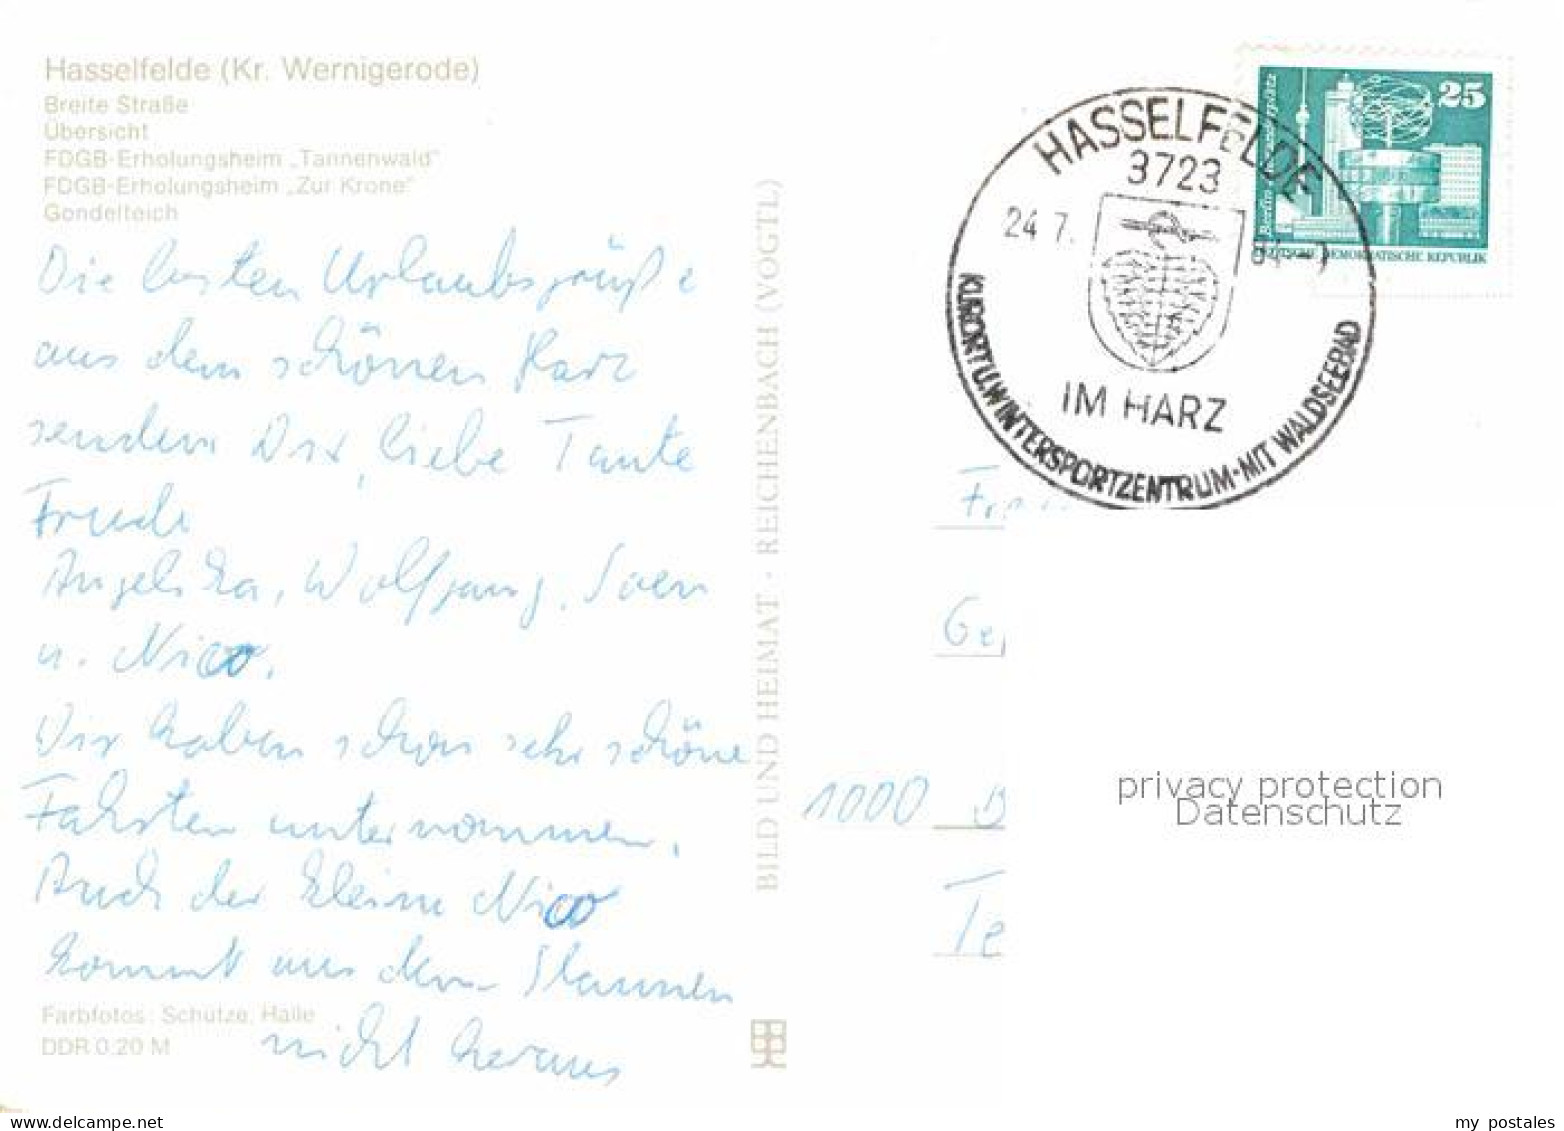 Hasselfelde (Kr. Wernigerode)
Breite Straße
Übersicht
FDGB-Erholungsheim „Tannenwald"
FDGB-Erholungsheim „Zur Krone"
Gondelteich
Die besten Urlaubsgrüße
aus dem schönen Harz
senden Dir, liebe Tante
Angelika, Wolfgang, Sven
u. Nico.
Wir haben schon sehr schöne
Fahrten unternommen.
Auch der kleine Nico
kommt aus dem Staunen
nicht heraus
Farbfotos: Schütze, Halle
DDR 0,20 M
BILD UND HEIMAT · REICHENBACH (VOGTL)
HASSELFELDE
3723
24 7.
IM HARZ
KURORT U. WINTERSPORTZENTRUM - MIT WALDSEEBAD
25
Berlin
DEUTSCHE DEMOKRATISCHE REPUBLIK
1000 B
Te
privacy protection
Datenschutz
my postales